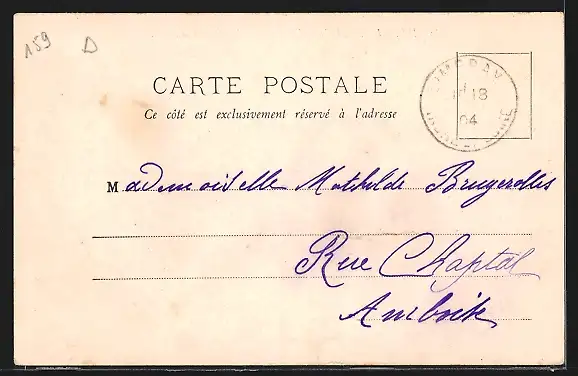 159 D
CARTE POSTALE
Ce côté est exclusivement réservé à l'adresse
18
04
Mademoiselle Mathilde Brugerolles
Rue Chaptal
Amboise